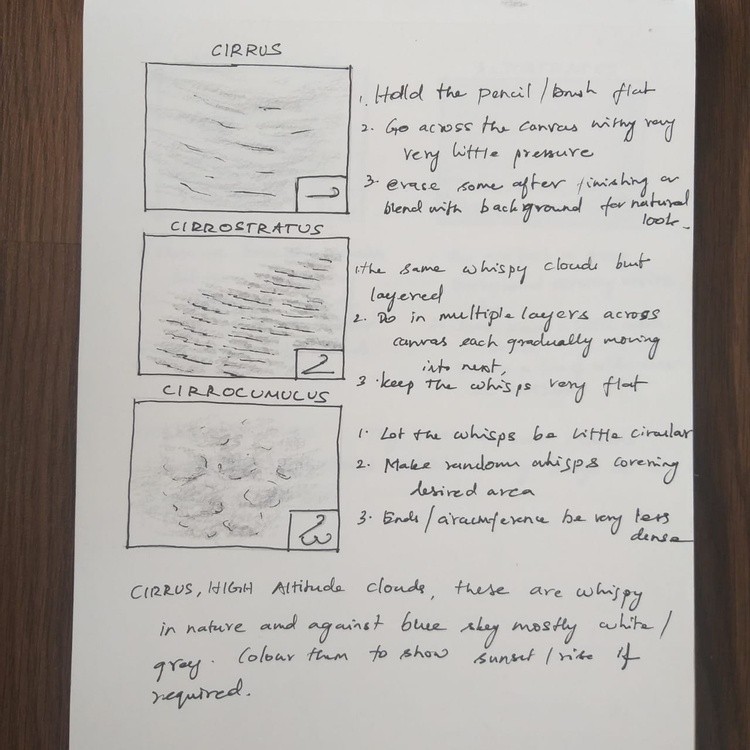 CIRRUS
1. Hold the pencil / brush flat
2. Go across the canvas with very
very little pressure
3. erase some after finishing or
blend with background for natural
look.
1
CIRROSTRATUS
1. the same whispy clouds but
layered
2. Do in multiple layers across
canvas each gradually moving
into next,
3. keep the whisps very flat
2
CIRROCUMULUS
1. Let the whisps be little circular
2. Make random whisps covering
desired area
3. Ends / circumference be very less
dense
3
CIRRUS, HIGH Altitude clouds, these are whispy
in nature and against blue sky mostly white /
gray. Colour them to show sunset / rise if
required.